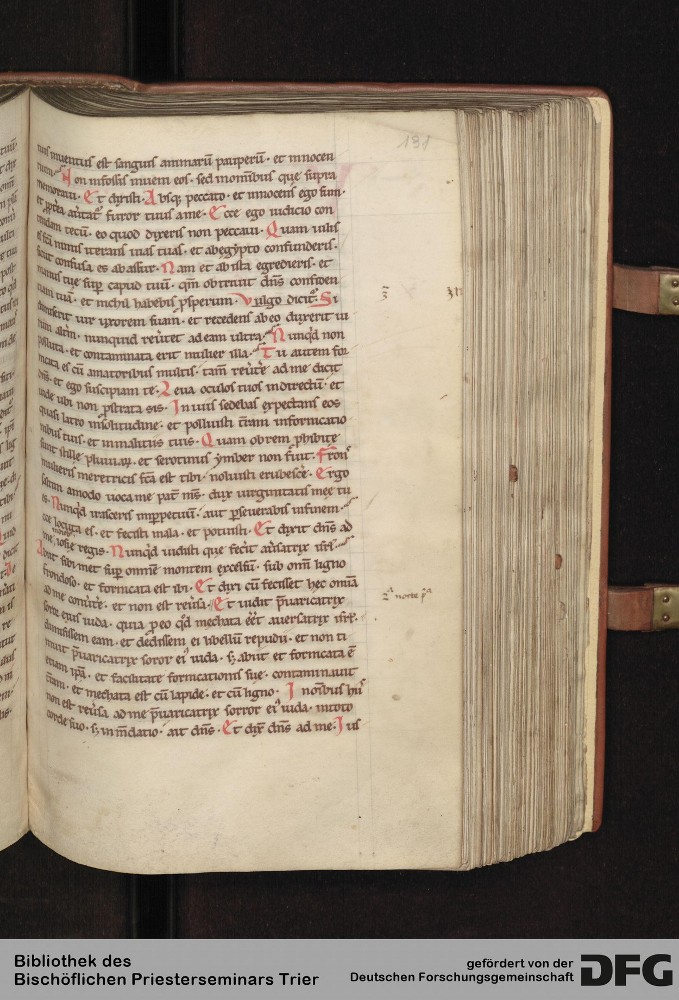 131
tuis inuentus est sanguis animarū pauperū· et innocen
tum· Non in fossis inueni eos· sed in omnibus que supra
memoraui· Et dixisti· Absq; peccato· et innocens ego sum·
et ꝓpterea auertat᷑ furor tuus a me· Ecce ego iudicio con
tendam tecū· eo quod dixeris non peccaui· Quam uilis
es fc̄a nimis iterans uias tuas· et ab egypto confunderis·
sicut confusa es ab assur· Nam et ab ista egredieris· et
manus tue sup̄ capud tuū· qm̄ obtriuit dn̄s confiden
tiam tuā· et nichil habebis ꝓsperum· Vulgo dicit᷑· Si
dimiserit uir uxorem suam· et recedens ab eo duxerit ui
rum alt̄m· nunquid reuertet᷑ ad eam ultra· Nunqd non
polluta· et contaminata erit mulier illa· Tu autem for
nicata es cū amatoribus multis· tam̄ reūtere ad me dicit
dn̄s· et ego suscipiam te· Leua oculos tuos in directū· et
uide ubi non ꝓstrata sis· In uiis sedebas expectans eos
quasi latro in solitudine· et polluisti t̄ram in fornicatio
nibus tuis· et in malitiis tuis· Quam ob rem ꝓhibite
sunt stille pluuiaꝝ· et serotinus ymber non fuit· Frons
mulieris meretricis fc̄a est tibi· noluisti erubescere· Ergo
saltim amodo uoca me pat̄ ms̄· dux uirginitatis mee tu
es· Nunqd irasceris in ꝑpetuū· aut ꝑseuerabis in finem·
ecce locuta es· et fecisti mala· et potuisti· Et dixit dn̄s ad
me· in diebus iosie regis· Nunqd uidisti que fecerit aūsatrix isr̄l·
Abiit sibimet sup̄ omnē montem excelsū· sub om̄i ligno
frondoso· et fornicata est ibi· Et dixi cū fecisset hec omīa
ad me conūtere· et non est reūsa· Et uidit p̄uaricatrix
soror eius iuda· quia ꝓ eo qd mechata eēt auersatrix isr̄l·
dimisissem eam· et dedissem ei libellū repudii· et non ti
muit p̄uaricatrix soror ei᷒ iuda· sꝫ abiit et fornicata ē
etiam ip̄a· et facilitate fornicationis sue· contaminauit
t̄ram· et mechata est cū lapide· et cū ligno· In om̄ibus hiis
non est reūsa ad me p̄uaricatrix sorror ei᷒ iuda· in toto
corde suo· sꝫ in m̄datio· ait dn̄s· Et dix̄ dn̄s ad me· Ius
Bibliothek des
Bischöflichen Priesterseminars Trier
gefördert von der
Deutschen Forschungsgemeinschaft
DFG